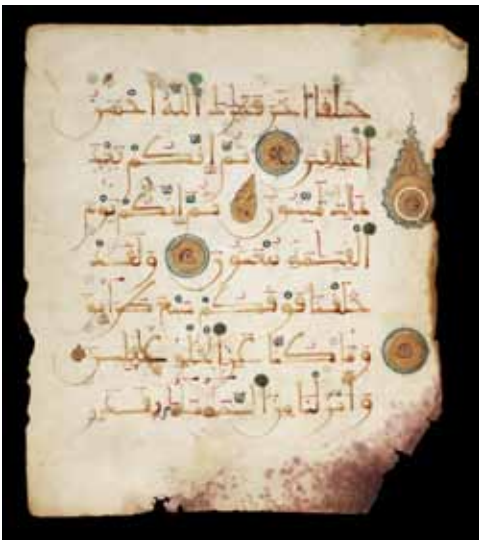 خلقا اخر فتبرك الله احسن
الخلقين ثم إنكم بعد
ذلك لميتون ثم إنكم يوم
القيمة تبعثون ولقد
خلقنا فوقكم سبع طرايق
وما كنا عن الخلق غفلين
وأنزلنا من السماء ماء بقدر